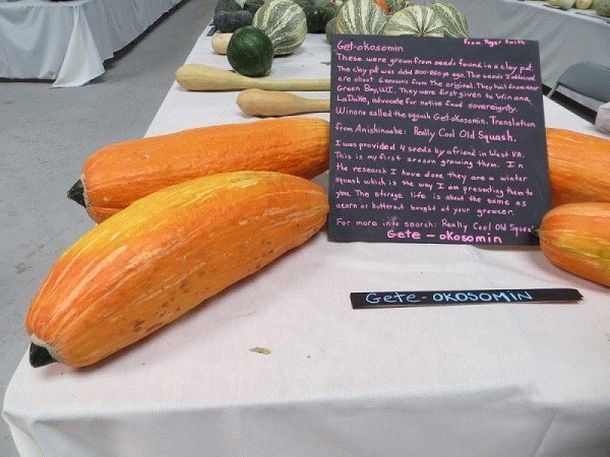 Get-okosomin
From Roger Smith
These were grown from seeds found in a clay pot.
The clay pot was dated 800-850 yrs ago. The seeds I obtained
are about 6 seasons from the original. They hail from near
Green Bay, WI. They were first given to Winona
LaDuke, advocate for native food sovereignty.
Winona called the squash Gete okosomin. Translation
from Anishinaabe: Really Cool Old Squash.
I was provided 4 seeds by a friend in West VA.
This is my first season growing them. In
the research I have done they are a winter
squash which is the way I am presenting them to
you. The storage life is about the same as
acorn or butternut bought at your grocer.
For more info search: Really Cool Old Squash
Gete - okosomin
Gete-OKOSOMIN